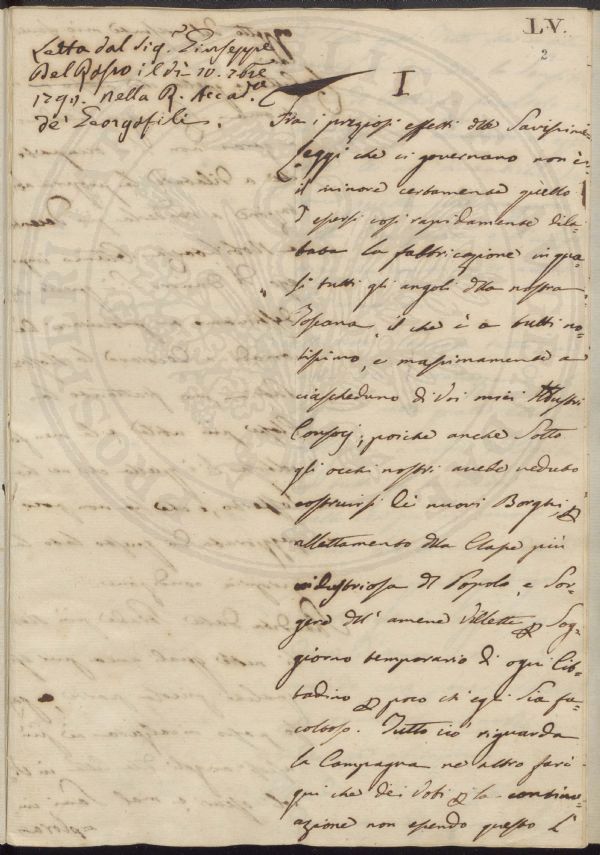 LV.
2
Letta dal Sig.r Giuseppe
Del Rosso il dì 10. 7bre
179 . nella R. Accad.a
de' Georgofili.
I
Fra i preziosi effetti dlle Savissime
Leggi che ci governano non è
il minore certamente quello
d'essersi così rapidamente dila-
tata la fabbricazione in qua-
si tutti gli angoli dlla nostra
Toscana, il che è a tutti no-
tissimo, e massimamente a
ciascheduno di Voi miei Illustri
Consocj; poiche anche Sotto
gli occhi nostri avete veduto
costruirsi de nuovi Borghi,
allettamento dlla Classe più
industriosa dl Popolo, e Sor-
gere dll' amene Villette Sog-
giorno temporario di ogni Cit-
tadino poco ch'egli Sia fa-
coltoso. Tutto ciò riguarda
la Campagna ne altro farò
qui che dei Voti la continu-
azione non essendo questo l'